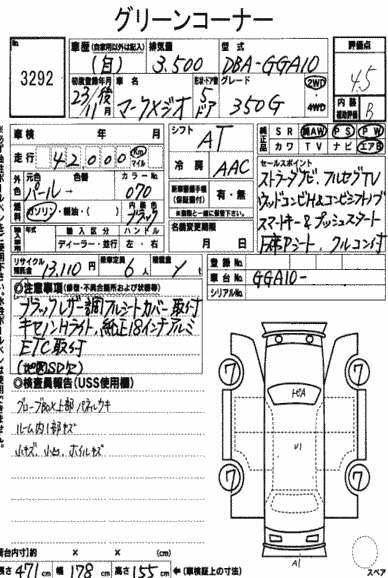 グリーンコーナー
No. 3292
車歴 (自家用以外は記入) (自)
排気量 3.500
型式 DBA-GGA10
評価点 4.5
初度登録年月 23/後 11月
車名 マークXジオ
形状・ドア数 5 ドア
グレード 350G
2WD
4WD
内装 補助評価 B
車検 年 月
シフト AT
純正品 SR 革AW PS PW
カワ TV ナビ エアB
走行 42000 Km マイル
冷房 AAC
セールスポイント
ストラーダナビ、フルセグTV
ウッドコンビH&コンビシフトノブ
スマートキー&プッシュスタート
フルコン付
外色 パール→
色替
カラーNo. 070
燃料 ガソリン・軽油・( )
内装色 ブラック
新車時保証書 有・無
※書類と一緒に保管下さい。
輸入車 年
輸入区分 ディーラー・並行
ハンドル 左・右
名義変更期限 月 日
リサイクル預託金 13,110円
乗車定員 6人
積載量 / t
登録No.
車台No. GGA10-
シリアルNo.
◎注意事項(修復・不具合箇所および状態等)
ブラックレザー調フルシートカバー取付
キセノンHライト、純正18インチアルミ
ETC取付
(地図SD欠)
◎検査員報告(USS使用欄)
グローブBOX上部パネルウキ
ルーム内1部キズ
小キズ、小凹、ホイルキズ
7 7
U1
7 7
A1
スペア
荷台内寸]約 × × (cm)
長さ 471cm 幅 178cm 高さ 155cm ←(車検証上の寸法)